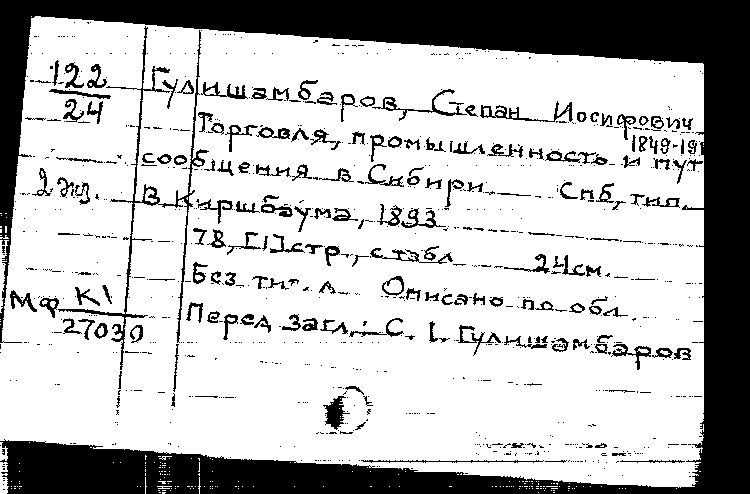 122
24
Гулишамбаров, Степан Иосифович
1849-191
Торговля, промышленность и пут
сообщения в Сибири. Спб, тип.
2 экз. В. Киршбаума, 1893
78, [1] стр., с табл 24 см.
Без тит. л Описано по обл.
Мф К1
27030
Перед загл.: С. I. Гулишамбаров